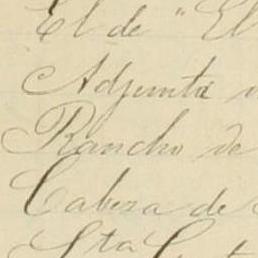 El de "El
Adjunta
Rancho de
Cabeza de
Sta